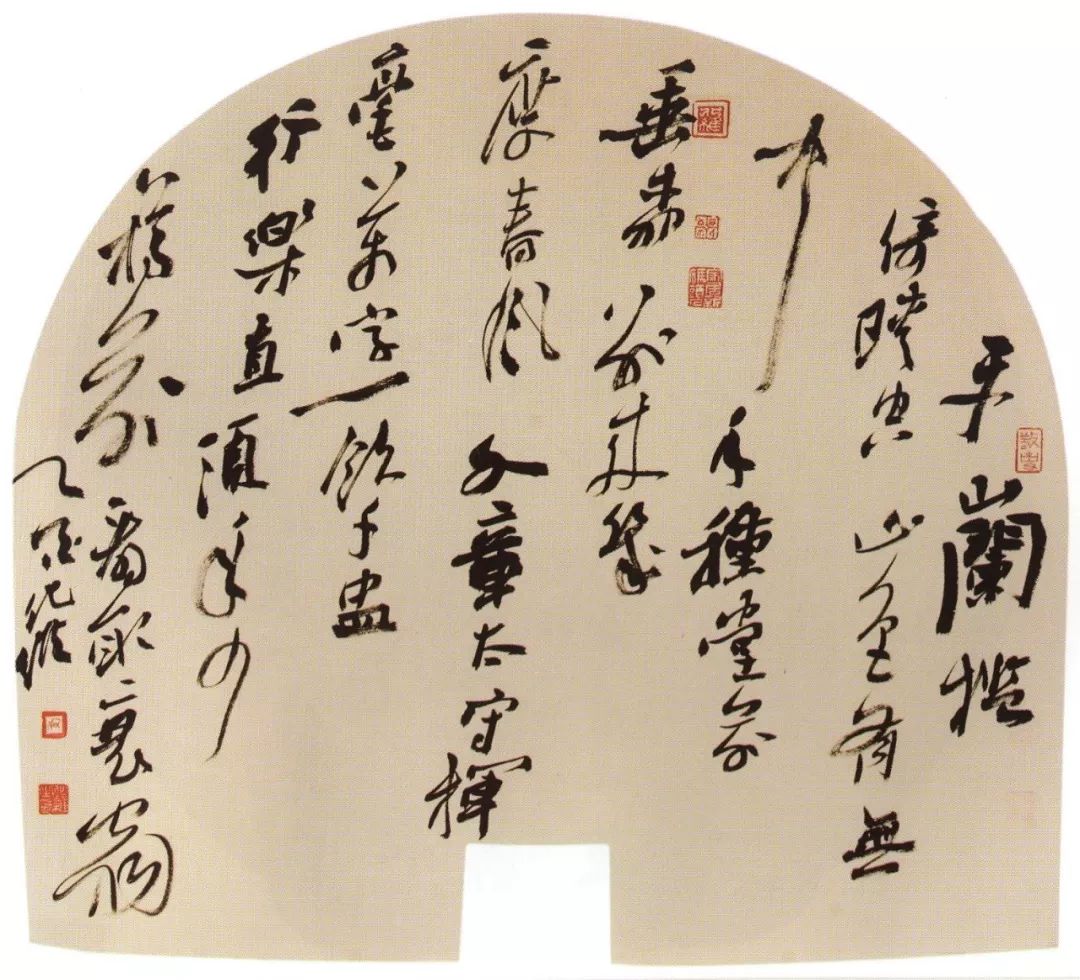 平山闌檻
倚晴空山色有無
中手種堂前
垂柳別来幾
度春風文章太守揮
毫萬字一飲千盅
行樂直須年少
樽前看取衰翁
乙酉